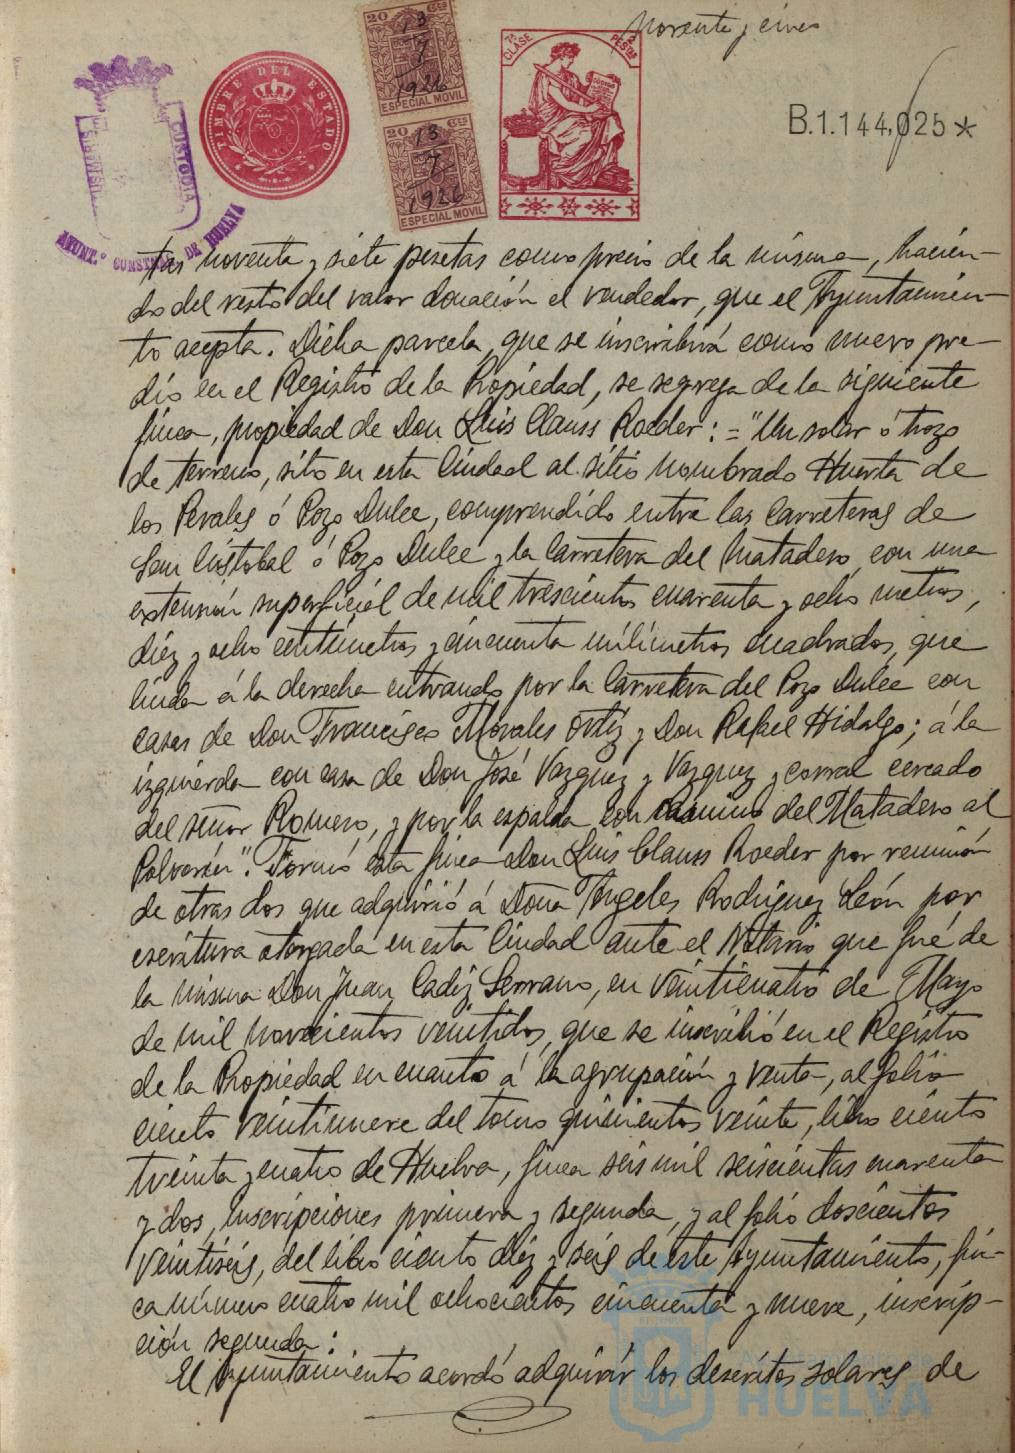 Noventa y cinco
TIMBRE DEL ESTADO
20 Cts
13
7
1926
ESPECIAL MOVIL
20 Cts
13
7
1926
ESPECIAL MOVIL
7ª CLASE
2 PESETAS
B.1.144,025*
CUSTODIA
AYUNT.º CONSTNAL DE HUELVA
tas noventa y siete pesetas como precio de la misma, hacien-
do del resto del valor donación el vendedor, que el Ayuntamien-
to acepta. Dicha parcela, que se inscribirá como nuevo pre-
dio en el Registro de la Propiedad, se segrega de la siguiente
finca, propiedad de Don Luis Clauss Roeder: = "Un solar ó trozo
de terreno, sito en esta Ciudad al sitio nombrado Huerta de
los Perales ó Pozo Dulce, comprendido entre las Carreteras de
San Cristobal ó Pozo Dulce y la Carretera del Matadero, con una
extensión superficial de mil trescientos cuarenta y ocho metros,
diez y ocho centimetros y cincuenta milimetros cuadrados, que
linda á la derecha entrando por la Carretera del Pozo Dulce con
casas de Don Francisco Morales Ortiz y Don Rafael Hidalgo; á la
izquierda con casa de Don José Vazquez y Vazquez y corral cercado
del señor Romero, y por la espalda con camino del Matadero al
Polvorin". Formó esta finca Don Luis Clauss Roeder por reunión
de otras dos que adquirió á Doña Angeles Rodriguez León por
escritura otorgada en esta Ciudad ante el Notario que fué de
la misma Don Juan Cadiz Serrano, en veinticuatro de Mayo
de mil novecientos veintidos, que se inscribió en el Registro
de la Propiedad en cuanto á la agrupación y venta, al folio
ciento veintinueve del tomo quinientos veinte, libro ciento
treinta y cuatro de Huelva, finca seis mil seiscientas cuarenta
y dos, inscripciones primera y segunda, y al folio doscientos
veintiséis, del libro ciento diez y seis de este Ayuntamiento, fin-
ca número cuatro mil ochocientos cincuenta y nueve, inscrip-
ción segunda:
El Ayuntamiento acordó adquirir los descritos solares de
Ayuntamiento de
HUELVA